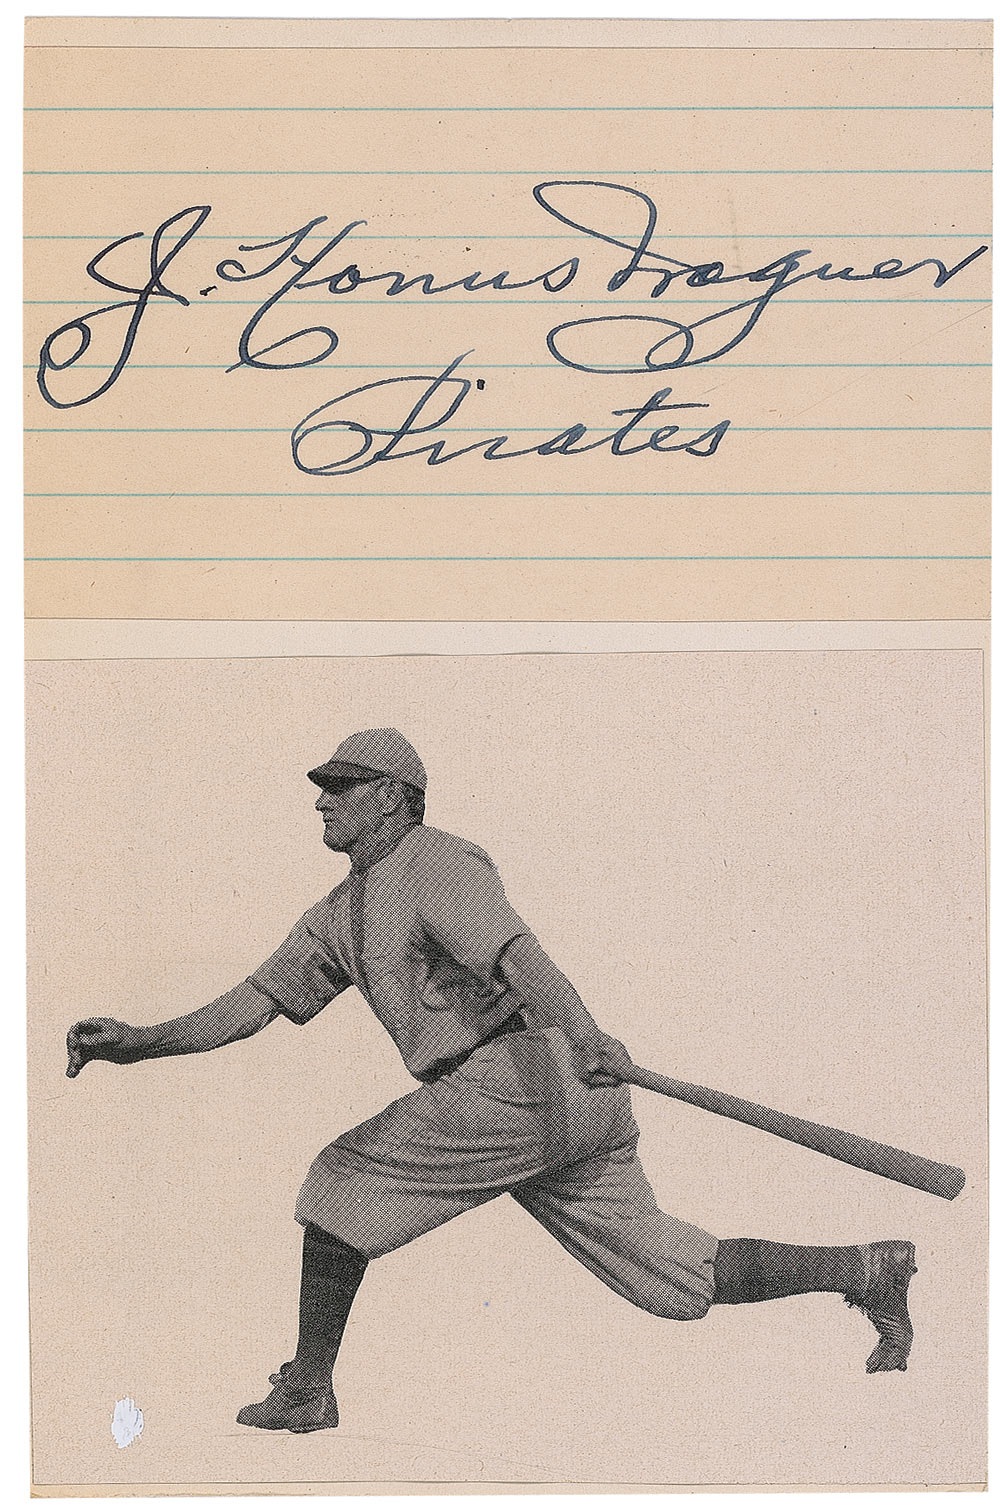 J. Honus Wagner
Pirates